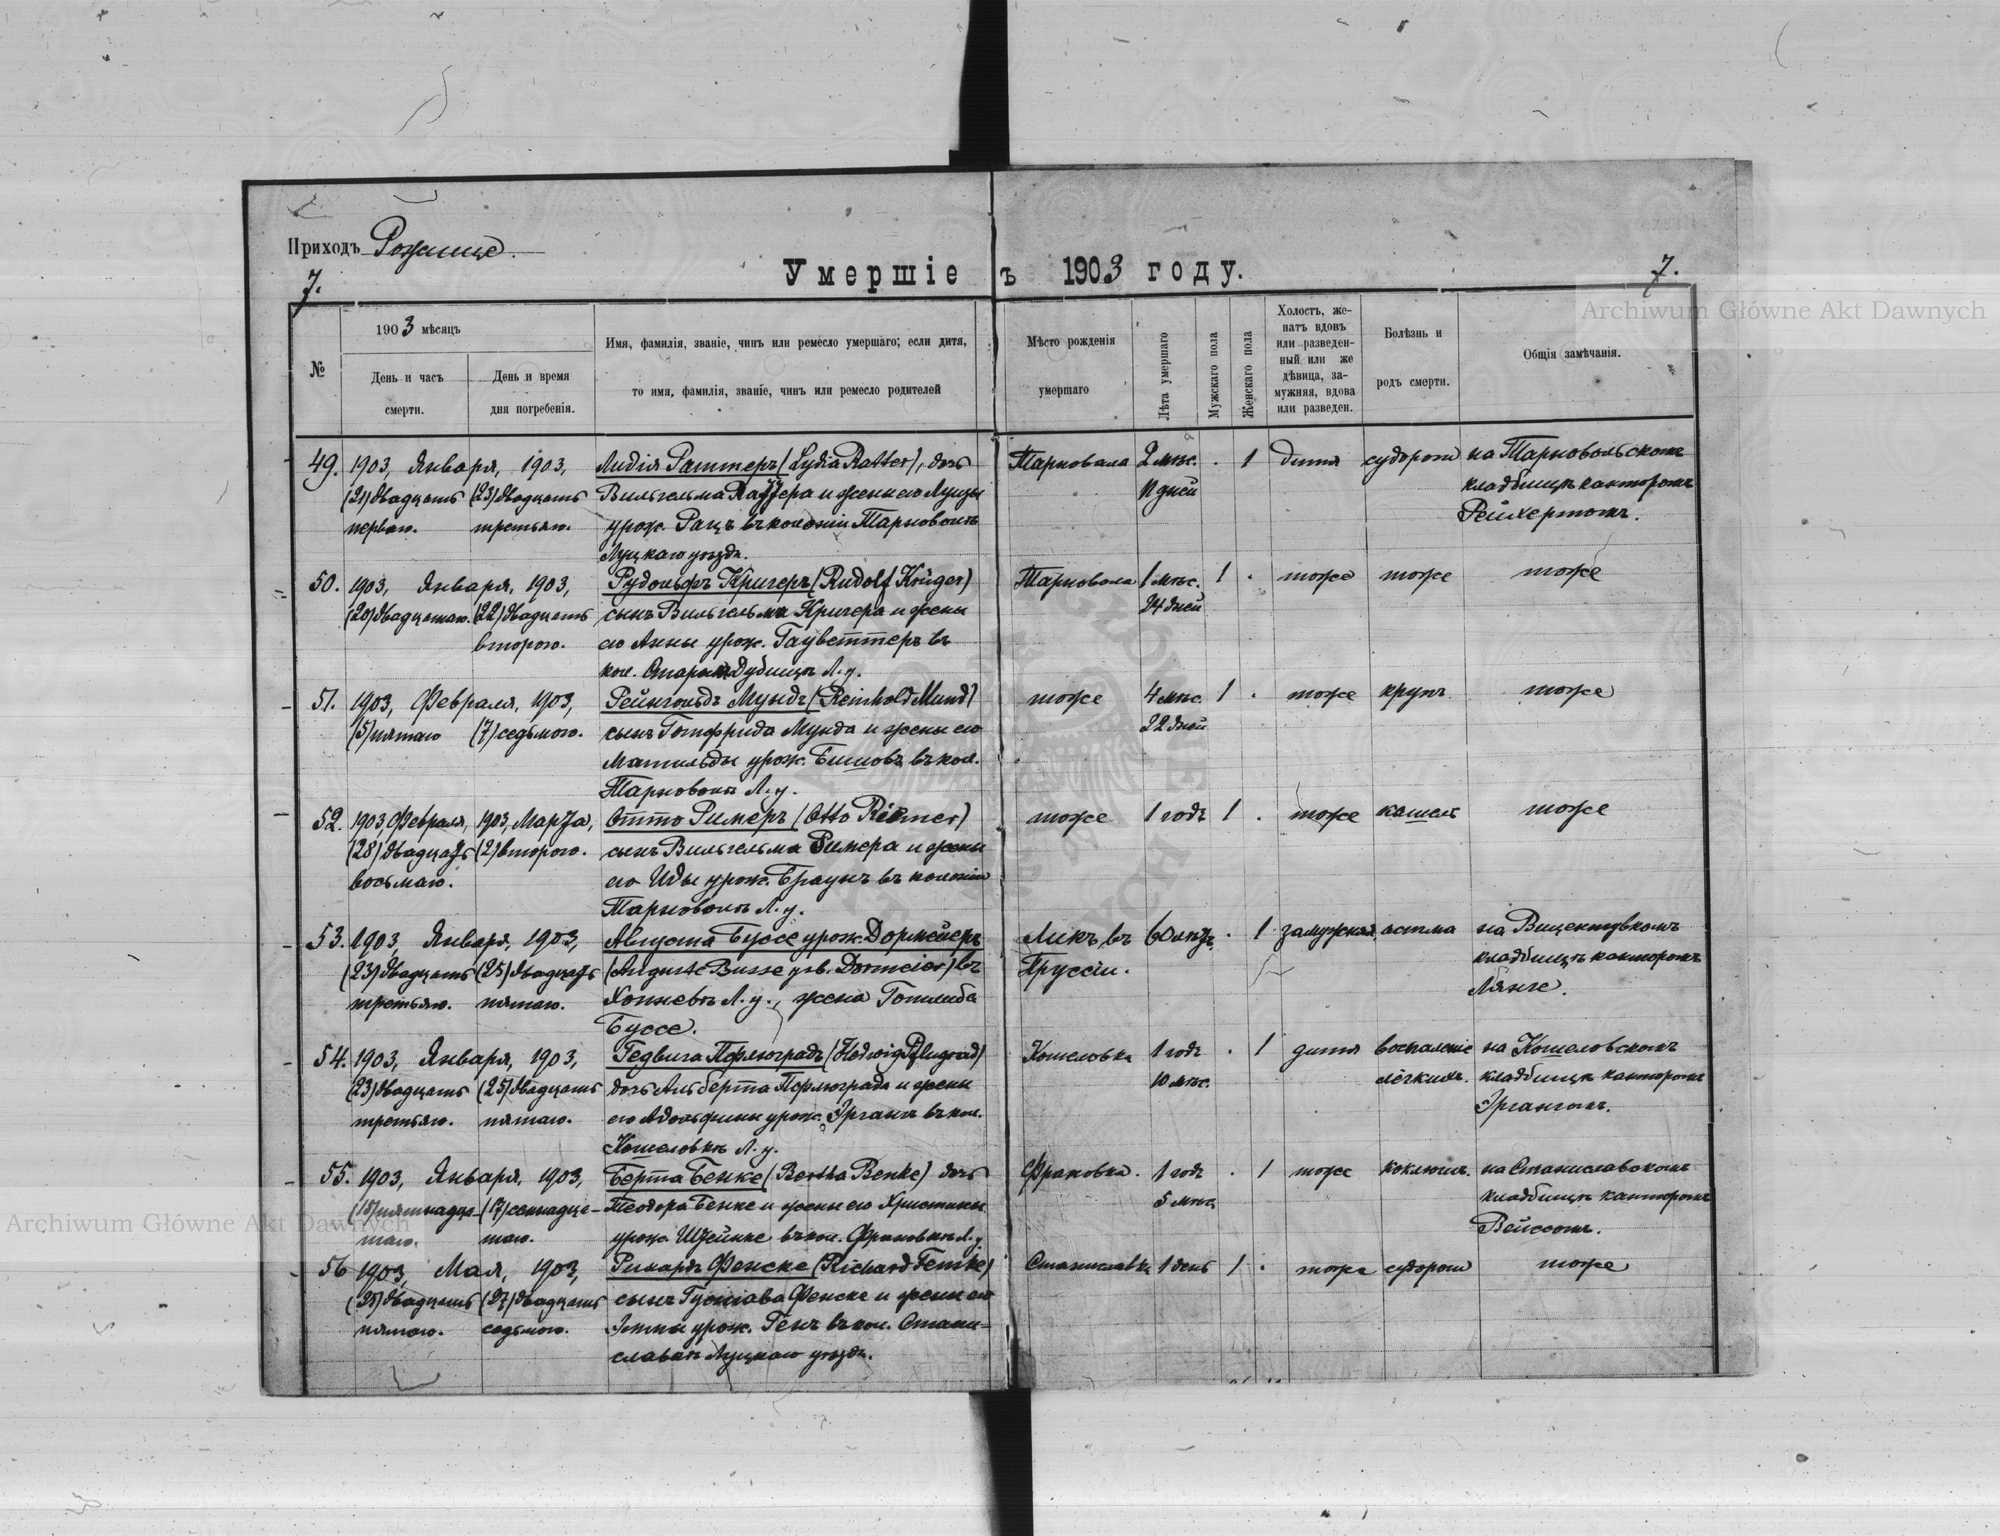 Приходъ Рожище.
7.
Умершіе въ 1903 году.
7.
Archiwum Główne Akt Dawnych
№
1903 мѣсяцъ
День и часъ
смерти.
День и время
дня погребенія.
Имя, фамилія, званіе, чинъ или ремесло умершаго; если дитя,
то имя, фамилія, званіе, чинъ или ремесло родителей
Мѣсто рожденія
умершаго
Лѣта умершаго
Мужскаго пола
Женскаго пола
Холостъ, же-
натъ вдовъ
или разведен-
ный или же
дѣвица, за-
мужняя, вдова
или разведен.
Болѣзнь и
родъ смерти.
Общія замѣчанія.
49. 1903, Января, 1903, Лидія Раттеръ (Lydia Ratter), дочь Тарновала 2 мѣс. . 1 дитя судороги на Тарновольскомъ
(21) двадцать (23) двадцать Вильгельма Раттера и жены его Луизы 11 дней кладбищѣ канторомъ
перваго. третьяго. урож. Рацъ въ колоніи Тарноволѣ Рейхертомъ.
Луцкаго уѣзда.
50. 1903, Января, 1903, Рудольфъ Кригеръ (Rudolf Krüger) Тарновола 1 мѣс. 1 . тоже тоже тоже
(20) двадцатаго. (22) двадцать сынъ Вильгельма Кригера и жены 24 дней
второго. его Анны урож. Гауветтеръ въ
кол. Старой Дубищѣ Л. у.
51. 1903, Февраля, 1903, Рейнгольдъ Мундъ (Reinhold Mund) тоже 4 мѣс. 1 . тоже крупъ тоже
(5) пятаго (7) седьмого. сынъ Готфрида Мунда и жены его 22 дней
Матильды урож. Бишовъ въ кол.
Тарноволѣ Л. у.
52. 1903, Февраля, 1903, Марта, Отто Римеръ (Otto Riemer) тоже 1 годъ 1 . тоже кашель тоже
(28) двадцать (2) второго. сынъ Вильгельма Римера и жены
восьмаго. его Иды урож. Браунъ въ колоніи
Тарноволѣ Л. у.
53. 1903 Января, 1903, Августа Буссе урож. Дормейеръ Ликъ, въ 60 лѣтъ . 1 замужняя астма на Вицентувкомъ
(23) двадцать (25) двадцать (Auguste Busse geb. Dormeier) въ Пруссіи. кладбищѣ канторомъ
третьяго. пятаго. Хопневѣ Л. у., жена Готлиба Лянге.
Буссе.
54. 1903, Января, 1903, Гедвига Пфлюградъ (Hedwig Pflugrad) Кошеловка 1 годъ . 1 дитя воспаленіе на Кошеловскомъ
(23) двадцать (25) двадцать дочь Альберта Пфлюграда и жены 10 мѣс. лёгкихъ. кладбищѣ канторомъ
третьяго. пятаго. его Адольфины урож. Эргангъ въ кол. Эргангомъ.
Кошеловкѣ Л. у.
55. 1903, Января, 1903, Берта Бенке (Bertha Benke) дочь Франовка. 1 годъ . 1 тоже коклюшъ. на Станиславскомъ
(15) пятнадца- (17) семнадца- Теодора Бенке и жены его Христины 5 мѣс. кладбищѣ канторомъ
таго. таго. урож. Штейнке въ кол. Франовкѣ Л. у. Вейссомъ.
56 1903, Мая, 1903, Рихардъ Фенске (Richard Fenske) Станиславка 1 день 1 . тоже судороги тоже
(25) двадцать (27) двадцать сынъ Густава Фенске и жены его
пятаго. седьмого. урож. Генъ въ кол. Стани-
славкѣ Луцкаго уѣзда.
Archiwum Główne Akt Dawnych